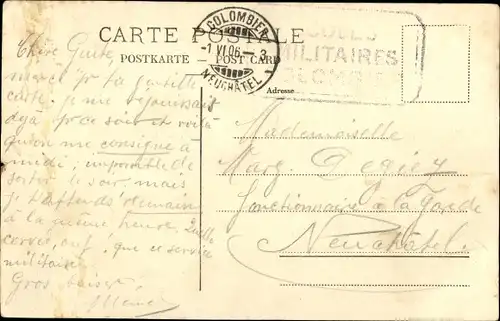 CARTE POSTALE
POSTKARTE — POST CARD
COLOMBIER
-1 VI.06-3
NEUCHÂTEL
ECOLES
MILITAIRES
COLOMBIER
Adresse
Chère
merci pr ta gentille
carte, je me réjouissais
déjà pr ce soir et voilà
qu'on me consigne à
midi; impossible de
sortir le soir, mais
je t'attends demain
à la même heure. Quelle
corvée, que ce service
militaire
Gros baiser
Mademoiselle
Marg.
fonctionnaire à la Garde
Neuchâtel